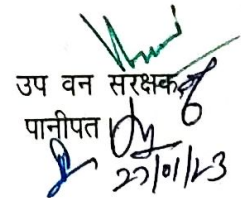 उप वन संरक्षक
पानीपत
27/01/23